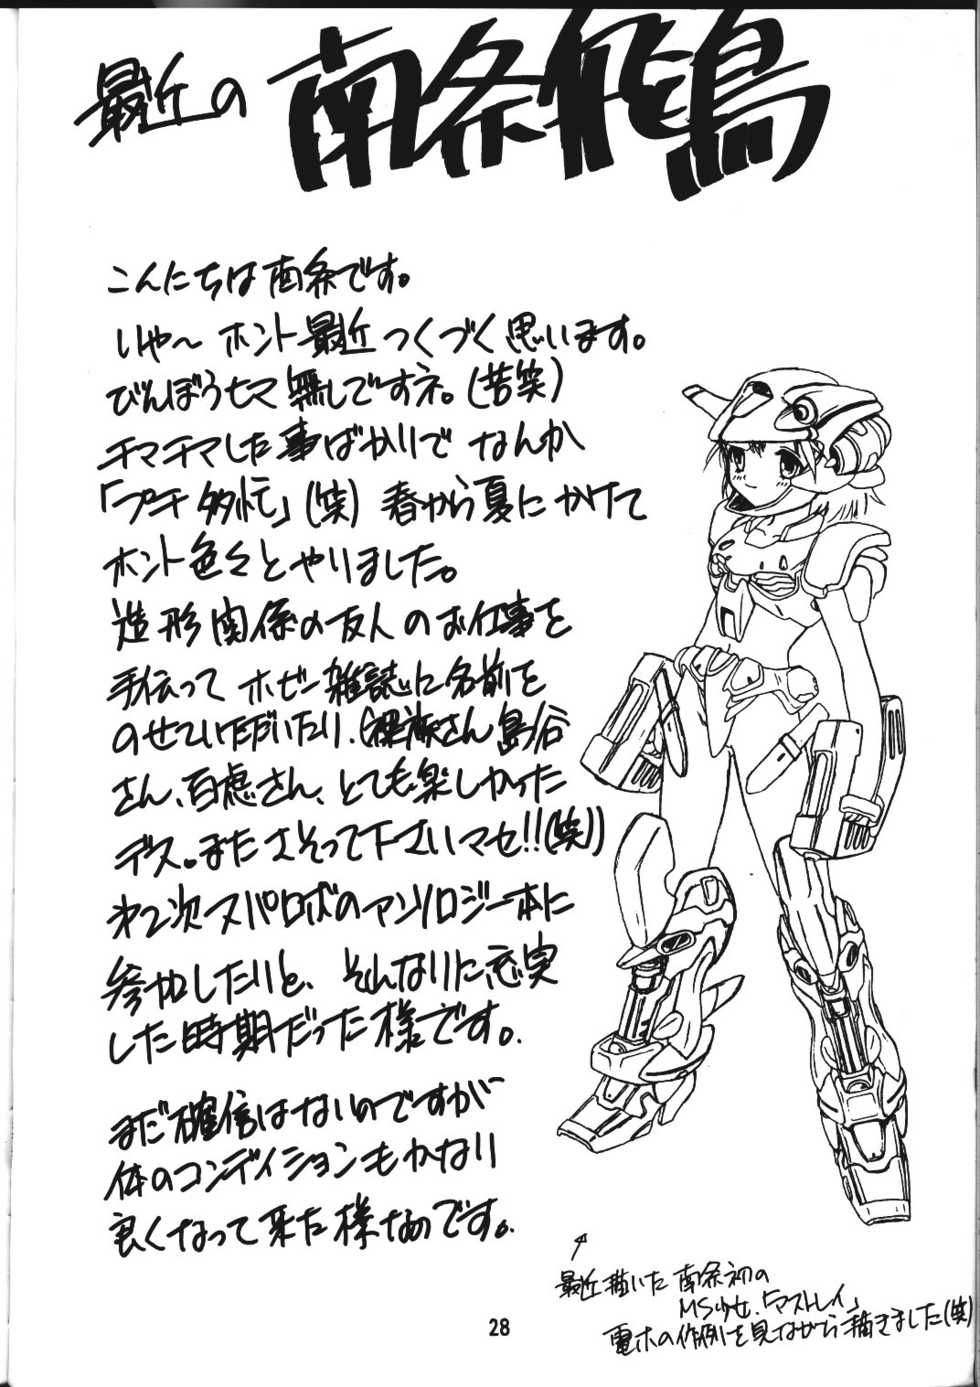 最近の 南条飛鳥
こんにちは南条です。
いや〜ホント最近つくづく思います。
びんぼうヒマ無しですネ。(苦笑)
チマチマした事ばかりでなんか
「プチ多忙」(笑) 春から夏にかけて
ホント色々とやりました。
造形関係の友人のお仕事を
手伝って ホビー雑誌に名前を
のせていただいたり、(裸族さん島谷
さん、百虎さん、とても楽しかった
デス。またさそって下さいマセ!!(笑))
第2次スパロボのアンソロジー本に
参加したりと、そんなりに充実
した時期だった様です。
まだ確信はないのですが
体のコンディションもかなり
良くなって来た様なのです。
最近描いた 南条初の
MS少女.「マストレイ」
電ホの作例を見ながら描きました(笑)
28